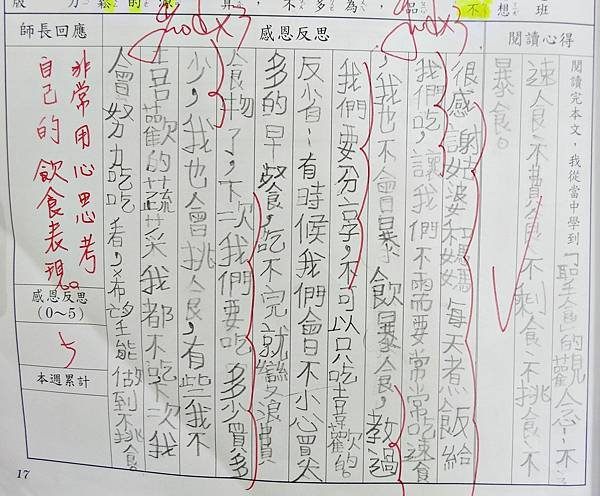 不想班
閱讀心得
閱讀完本文，我從當中學到「聖食」的觀念：不
速食、不費食、不剩食、不挑食、不
暴食。
感恩反思
很感謝姑婆和媽媽每天煮飯給
我們吃，讓我們不需要常常吃速食
，我也不會暴飲暴食，教過
我們要分享，不可以只吃喜歡的
反省：有時候我們會不小心買太
多的早餐，吃不完就變浪費
食物了，下次我們要吃多少買多
少，我也會挑食，有些我不
喜歡的蔬菜我都不吃下次我
會努力吃吃看，希望能做到不挑食
師長回應
good x3
good x3
非常用心思考
自己的飲食表現。
感恩反思
(0~5)
5
本週累計
17